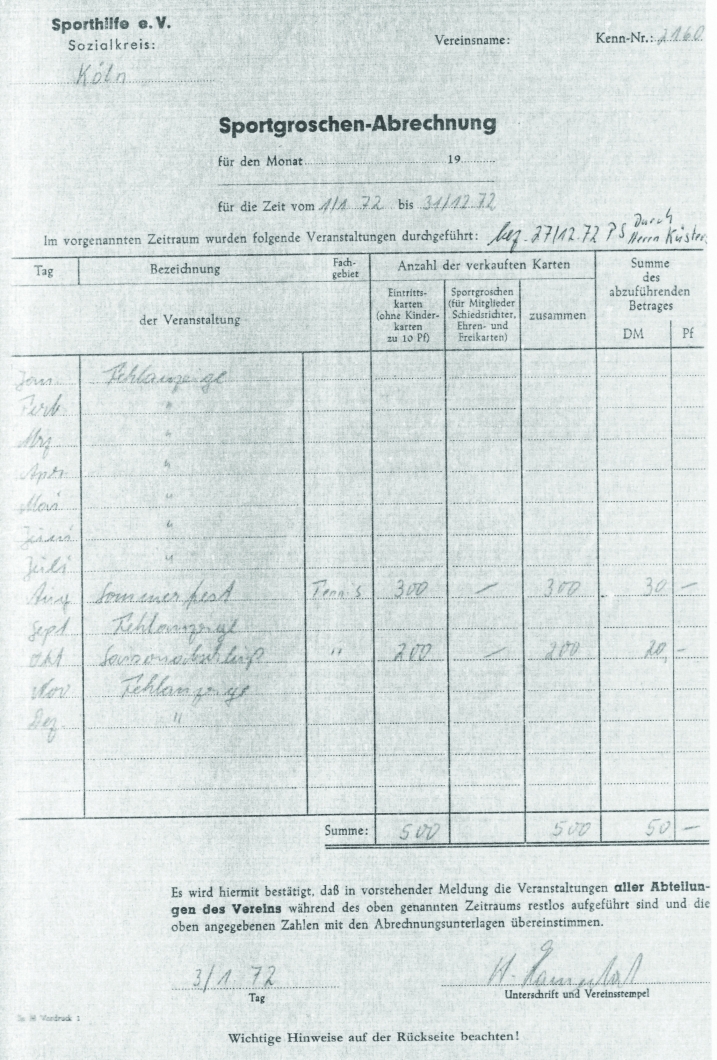 Sporthilfe e.V.
Sozialkreis:
Köln
Vereinsname:
Kenn-Nr.: 2160
Sportgroschen-Abrechnung
für den Monat 19
für die Zeit vom 1/1 72 bis 31/12 72
Im vorgenannten Zeitraum wurden folgende Veranstaltungen durchgeführt: bez. 27/12.72 PS Durch Herrn Küster
Tag Bezeichnung der Veranstaltung Fach-gebiet Anzahl der verkauften Karten Summe des abzuführenden Betrages
Eintritts-karten (ohne Kinder-karten zu 10 Pf) Sportgroschen (für Mitglieder Schiedsrichter, Ehren- und Freikarten) zusammen DM Pf
Jan Fehlanzeige
Feb "
Mrz "
Apr "
Mai "
Juni "
Juli "
Aug Sommerfest Tennis 300 – 300 30 –
Sept Fehlanzeige
Okt Saisonabschluß " 200 – 200 20, –
Nov Fehlanzeige
Dez "
Summe: 500 500 50 –
Es wird hiermit bestätigt, daß in vorstehender Meldung die Veranstaltungen aller Abteilun-
gen des Vereins während des oben genannten Zeitraums restlos aufgeführt sind und die
oben angegebenen Zahlen mit den Abrechnungsunterlagen übereinstimmen.
3/1 72
Tag
Unterschrift und Vereinsstempel
Vordruck 1
Wichtige Hinweise auf der Rückseite beachten!